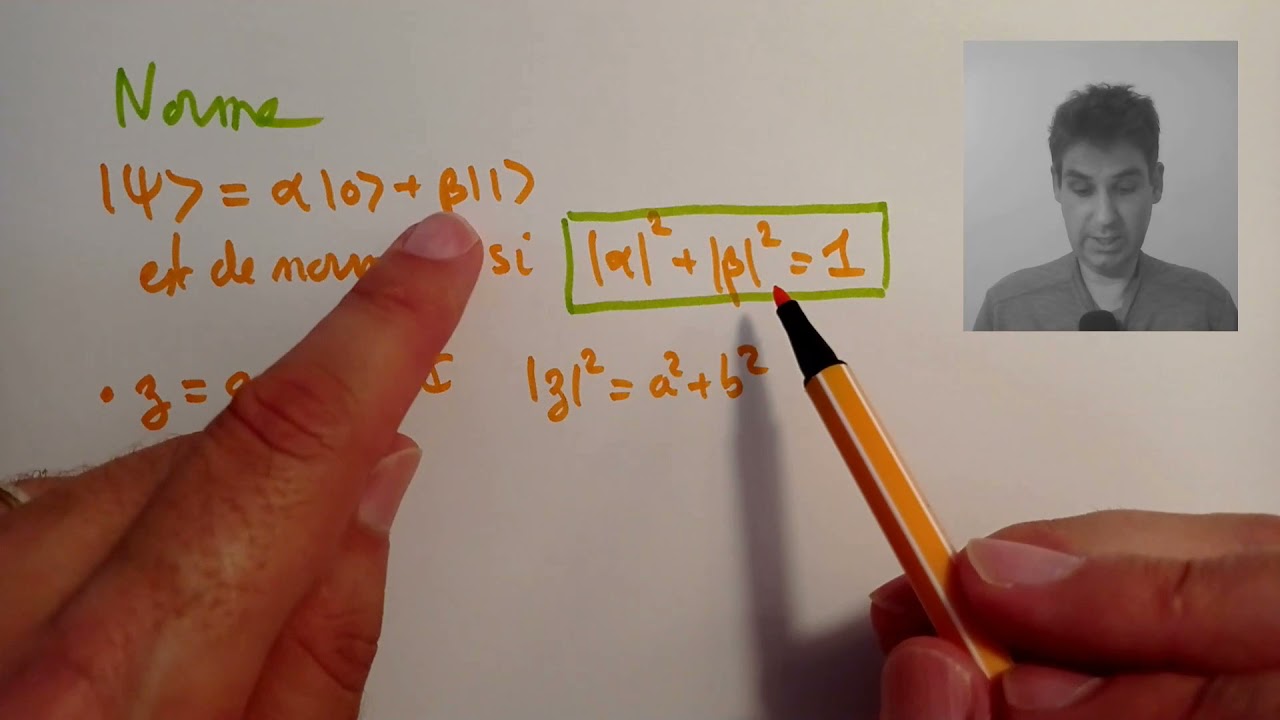 Norme
|ψ> = α|0> + β|1>
est de norm si |α|² + |β|² = 1
• z = a |z|² = a² + b²